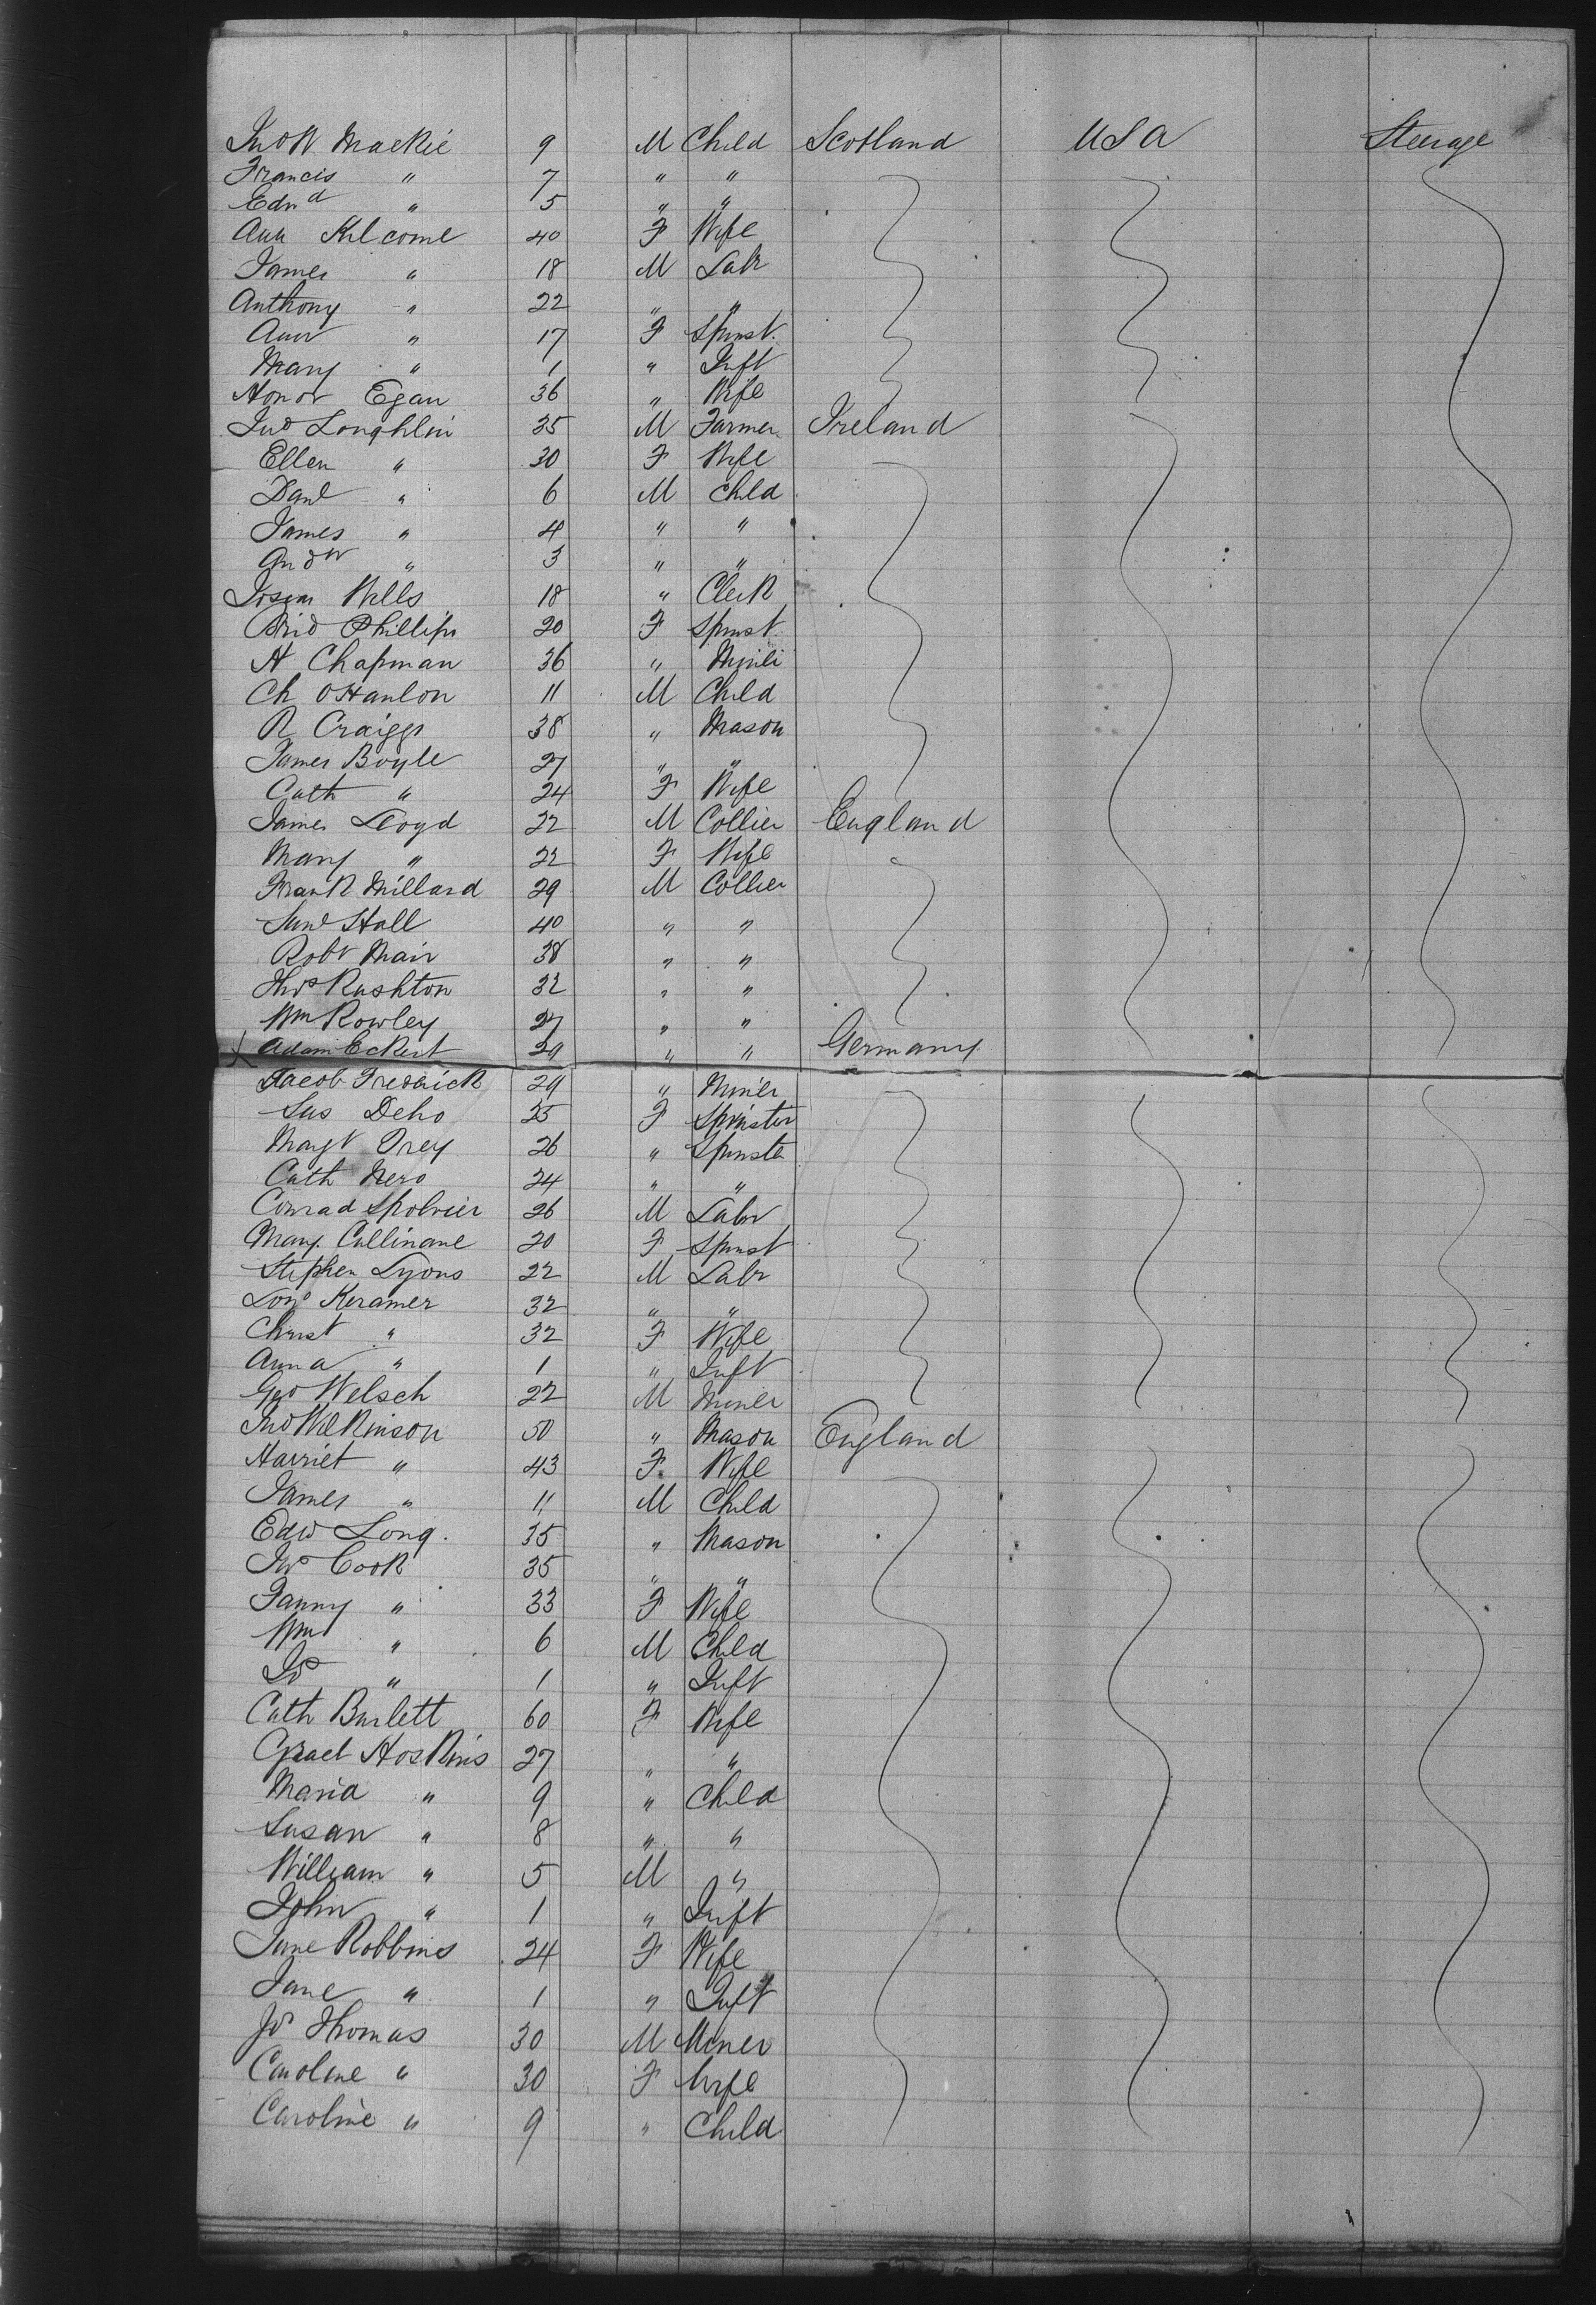 Jno W Mackie 9 M Child Scotland USA Steerage
Francis " 7 " "
Edwd " 5 " "
Ann Kilcome 40 F Wife
James " 18 M Labr
Anthony " 22 " "
Ann " 17 F Spinst.
Mary " 1 " Inft
Honor Egan 36 " Wife
Jno Loughlin 35 M Farmer Ireland
Ellen " 30 F Wife
Danl " 6 M Child
James " 4 " "
Andw " 3 " "
Wells 18 " Clerk
Brid Phillips 20 F Spinst.
H Chapman 36 " 
Ch OHanlon 11 M Child
R Craiggs 38 " Mason
James Boyle 27 " "
Cath " 24 F Wife
James Lloyd 22 M Collier England
Mary " 22 F Wife
Frank Millard 29 M Collier
Saml Hall 40 " "
Robt Mair 38 " "
Thos Rushton 32 " "
Wm Rowley 27 " "
X Adam Eckert 29 " " Germany
Jacob Fredrick 29 " Miner
Sus Deho 25 F Spinster
Margt Orey 26 " Spinste
Cath Nero 24 " "
Conrad 26 M Labr
Mary Cullinane 20 F Spinst
Stephen Lyons 22 M Labr
Kramer 32 " "
Christ " 32 F Wife
Anna " 1 " Inft
Geo Welsch 22 M Miner
Jno Wilkinson 50 " Mason England
Harriet " 43 F. Wife
James " 11 M Child
Edwd Long. 35 " Mason
Jno Cook 35 " "
Fanny " 33 F Wife
Wm " 6 M Child
Jno " 1 " Inft
Cath Burlett 60 F Wife
Grace Hoskins 27 " "
Maria " 9 " Child
Susan " 8 " "
William " 5 M "
John " 1 " Inft
Jane Robbins 24 F Wife
Jane " 1 " Inft
Jos Thomas 30 M Miner
Caroline " 30 F Wife
Caroline " 9 " Child